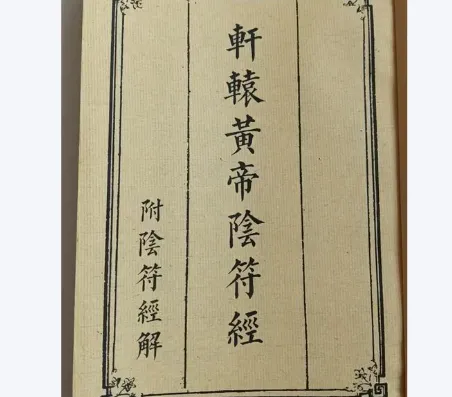 軒轅黃帝陰符經
附陰符經解